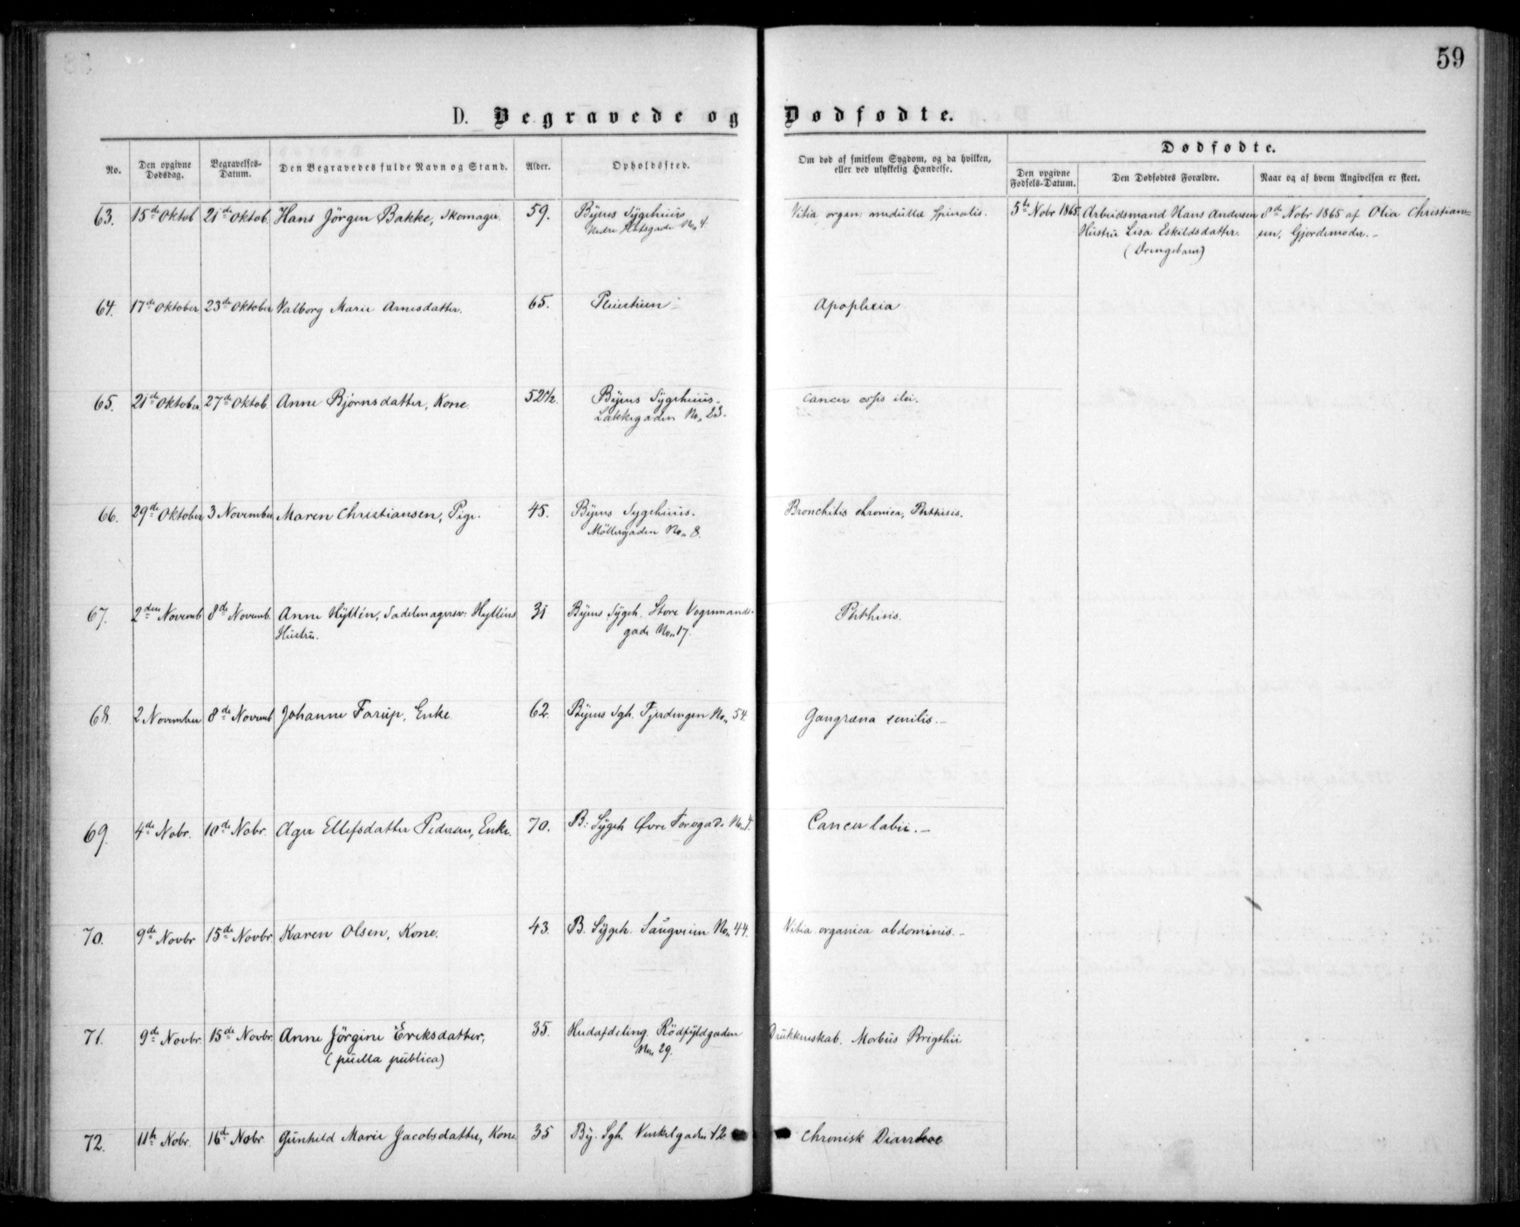 59
D. Begravede og Dødfødte.
No.
Den opgivne Dødsdag.
Begravelses-Datum.
Den Begravedes fulde Navn og Stand.
Alder.
Opholdssted.
Om død af smitsom Sygdom, og da hvilken, eller ved ulykkelig Hændelse.
Dødfødte.
Den opgivne Fødsels-Datum.
Den Dødfødtes Forældre.
Naar og af hvem Angivelsen er skeet.
63. 15de Oktob 21de Oktob. Hans Jörgen Bakke, Skomager. 59. Byens Sygehuus Vitia organ. medullæ spinalis. 5te Nobr 1865. Arbeidsmand Hans Andersen 8de Nobr 1865 af Olia Christian-
Nedre No. 4. Hustru Lisa Eskildsdatter. sen, Gjordemoder.
(Drengebarn)
64. 17de Oktober 23de Oktober Valborg Marie Arnesdatter. 65. Apoplexia
65. 21de Oktober 27de Oktob. Anne Bjørnsdatter, Kone. 52½. Byens Sygehuus. Cancer
Lakkegaden No. 23.
66. 29de Oktober 3 November Maren Christiansen, Pige. 45. Byens Sygehuus. Bronchitis chronica, Phthisis.
Möllergaden No. 8.
67. 2den Novemb 8de Novemb. Anne Hyttén, Sadelmagersv: Hytténs 31 Byens Sygeh. Store Vognmands- Phthisis.
Hustru. gade No. 17.
68. 2 November 8de Novemb Johanne Farup, Enke 62. Byens Sgh. Fjerdingen No. 54. Gangræna senilis.
69. 4de Nobr. 10de Nobr. Agn Ellefsdatter Pedersen, Enke. 70. B: Sygeh Øvre Fossgade No. 7. Cancer labii.
70. 9de Novbr 15de Novbr Karen Olsen, Kone. 43. B. Sygeh. Saugveien No. 44. Vitia organica abdominis.
71. 9de Novbr. 15de Novbr. Anne Jörgine Eriksdatter, 35. Hudafdeling. Rödfyldgaden Drukkenskab. Morbus Brigthii
(puella publica) No. 29.
72. 11te Nobr. 16de Nobr Gunhild Marie Jacobsdatter, Kone 35 By. Sgh. Vinkelgaden 12 Chronisk Diarrhoe